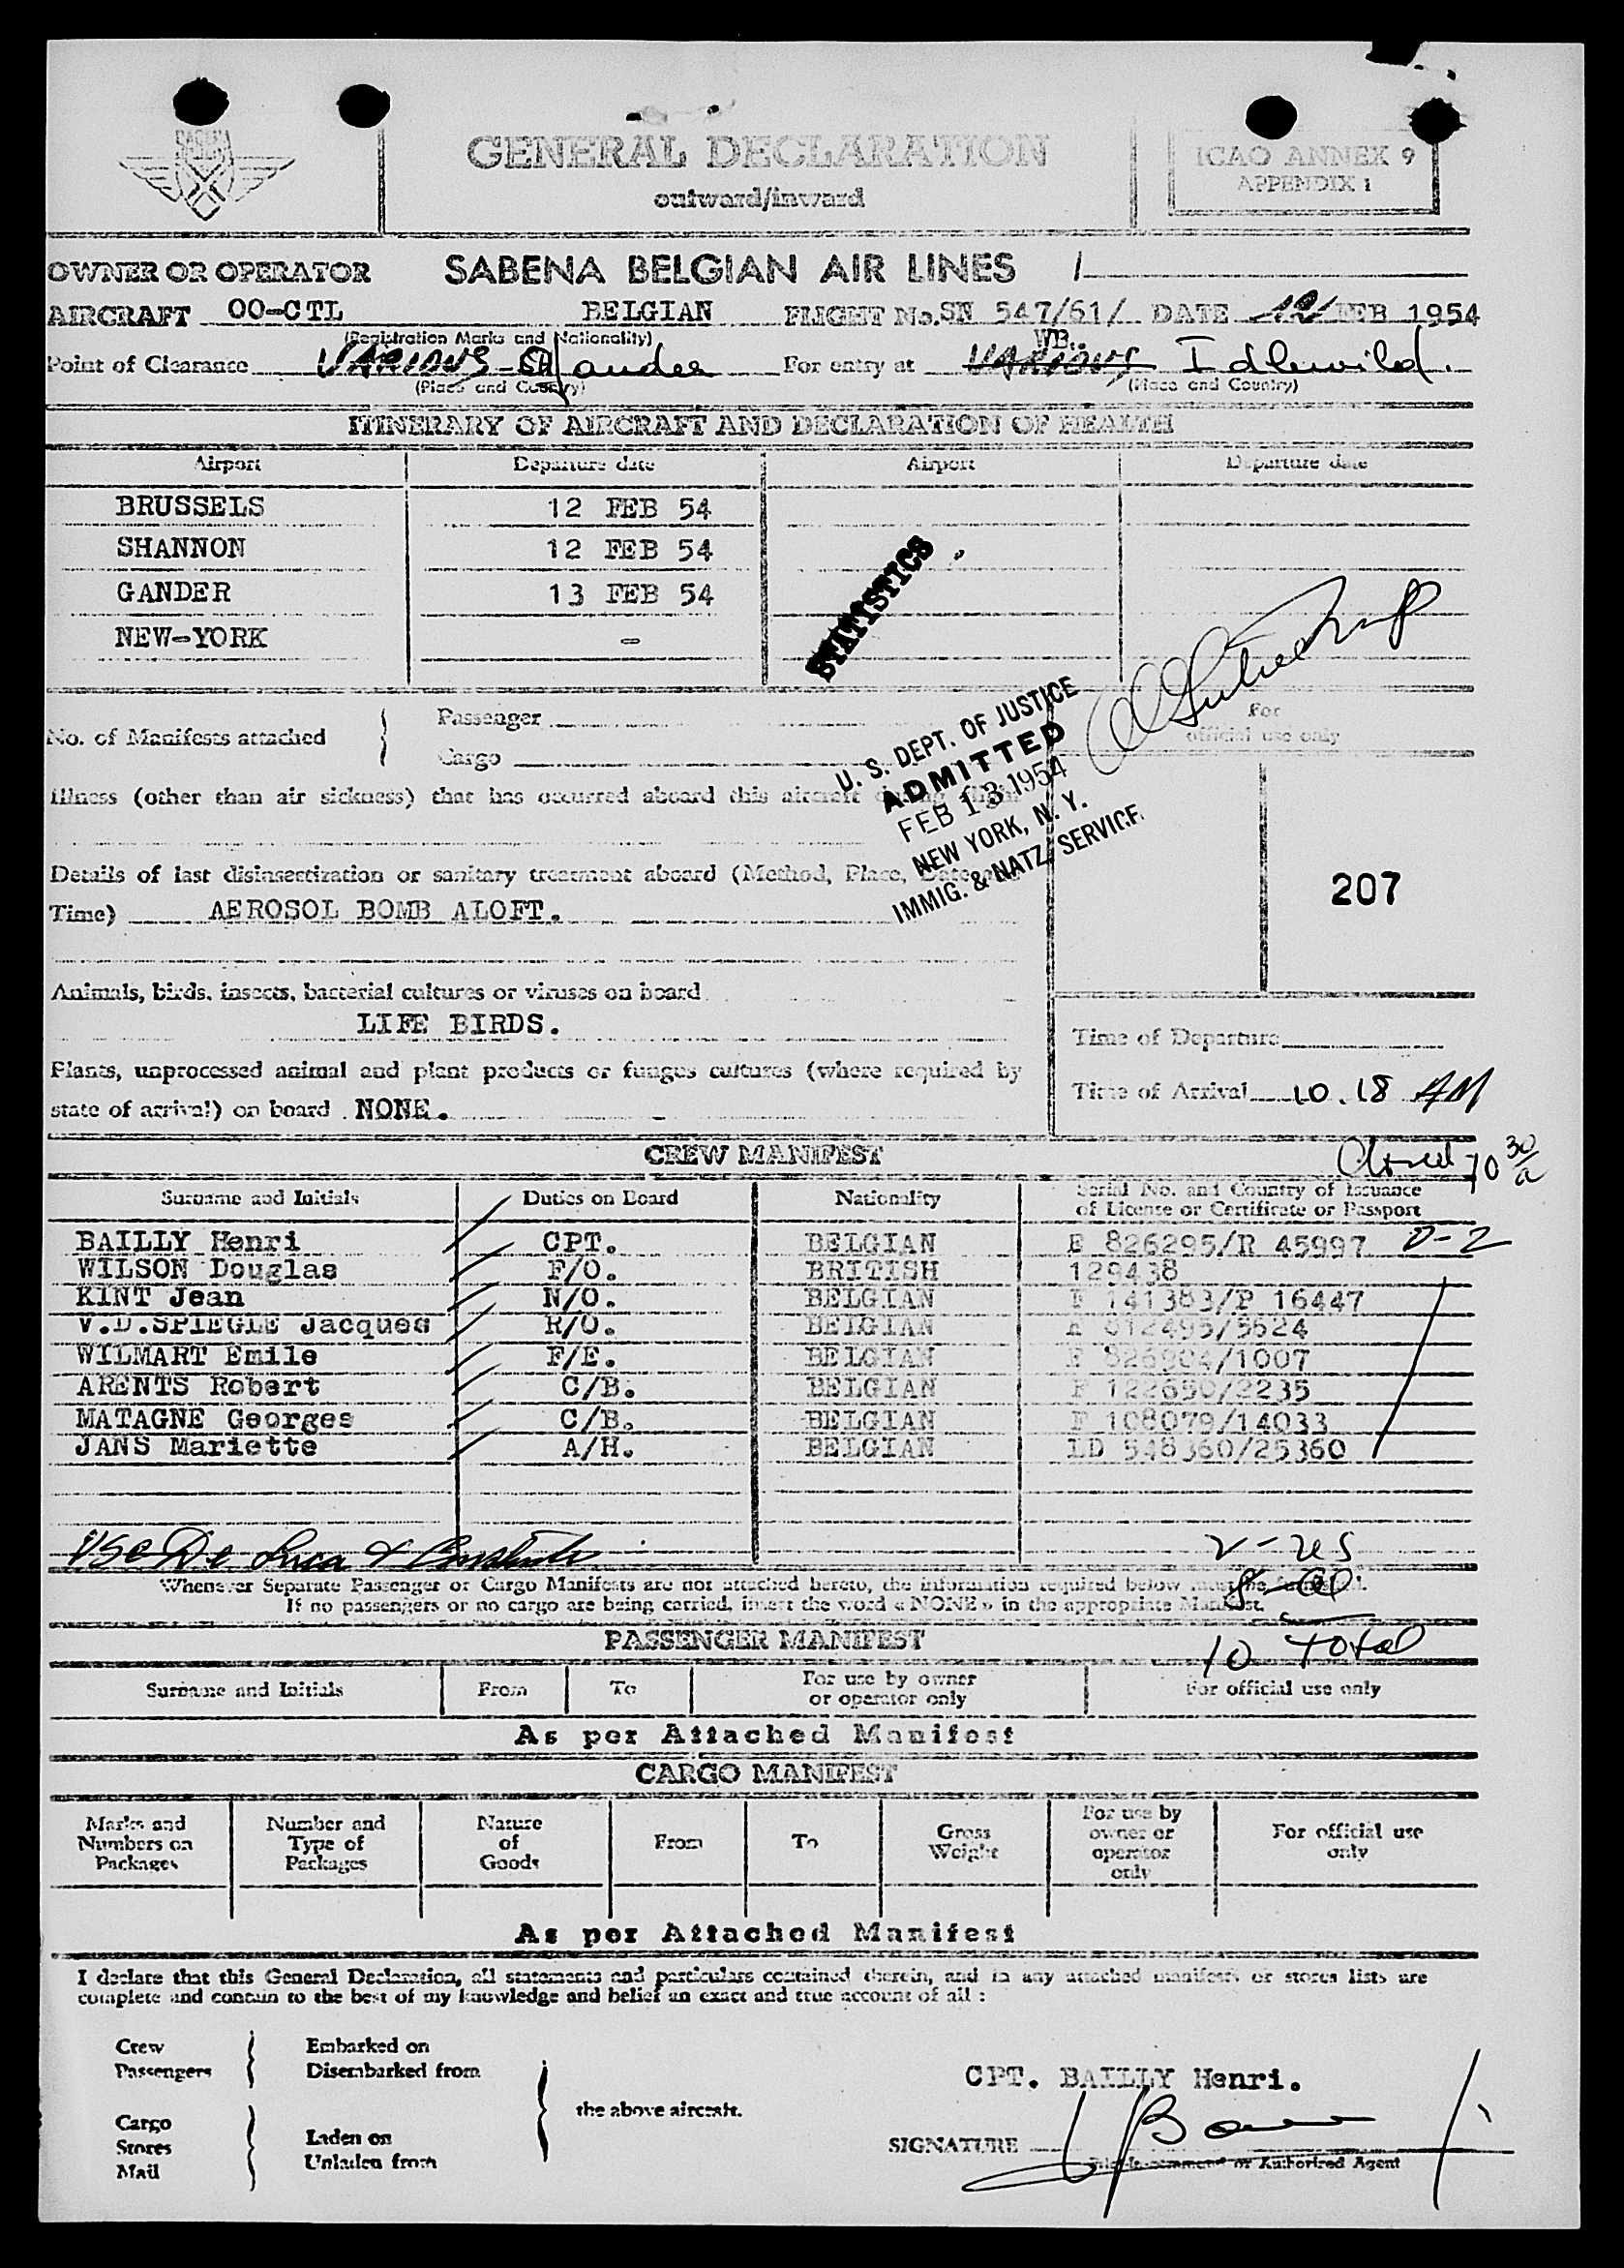 SABENA
GENERAL DECLARATION
outward/inward
ICAO ANNEX 9
APPENDIX 1
OWNER OR OPERATOR SABENA BELGIAN AIR LINES /
AIRCRAFT OO-CTL BELGIAN FLIGHT No. SN 547/61/ DATE 12 FEB 1954
(Registration Marks and Nationality) WB..
Point of Clearance VARIOUS - Gander For entry at VARIOUS Idlewild.
(Place and Country) (Place and Country)
ITINERARY OF AIRCRAFT AND DECLARATION OF HEALTH
Airport Departure date Airport Departure date
BRUSSELS 12 FEB 54
SHANNON 12 FEB 54
GANDER 13 FEB 54
NEW-YORK -
STATISTICS
No. of Manifests attached { Passenger
Cargo
For
official use only
U. S. DEPT. OF JUSTICE
ADMITTED
FEB 13 1954
NEW YORK, N. Y.
IMMIG. & NATZ. SERVICE
Illness (other than air sickness) that has occurred aboard this aircraft during
Details of last disinsectization or sanitary treatment aboard (Method, Place, Date and
Time) AEROSOL BOMB ALOFT.
207
Animals, birds, insects, bacterial cultures or viruses on board
LIFE BIRDS.
Time of Departure
Plants, unprocessed animal and plant products or fungus cultures (where required by
state of arrival) on board NONE.
Time of Arrival 10.18 AM
CREW MANIFEST
Closed 10 30/a
Surname and Initials Duties on Board Nationality Serial No. and Country of Issuance
of License or Certificate or Passport
BAILLY Henri CPT. BELGIAN E 826295/R 45997 D-2
WILSON Douglas F/O. BRITISH 129438
KINT Jean N/O. BELGIAN F 141383/P 16447
V.D.SPIEGLE Jacques R/O. BELGIAN A 012495/5624
WILMART Emile F/E. BELGIAN F 826904/1007
ARENTS Robert C/B. BELGIAN F 122650/2235
MATAGNE Georges C/B. BELGIAN F 108079/14033
JANS Mariette A/H. BELGIAN LD 548360/25360
De Luca &
2 - US
8 - al
10 Total
Whenever Separate Passenger or Cargo Manifests are not attached hereto, the information required below must be furnished.
If no passengers or no cargo are being carried, insert the word « NONE » in the appropriate Manifest.
PASSENGER MANIFEST
Surname and Initials From To For use by owner
or operator only For official use only
As per Attached Manifest
CARGO MANIFEST
Marks and
Numbers on
Packages Number and
Type of
Packages Nature
of
Goods From To Gross
Weight For use by
owner or
operator
only For official use
only
As per Attached Manifest
I declare that this General Declaration, all statements and particulars contained therein, and in any attached manifests or stores lists are
complete and contain to the best of my knowledge and belief an exact and true account of all :
Crew Embarked on
Passengers Disembarked from
the above aircraft.
Cargo
Stores Laden on
Mail Unladen from
CPT. BAILLY Henri.
SIGNATURE
Pilot-in-command or Authorized Agent